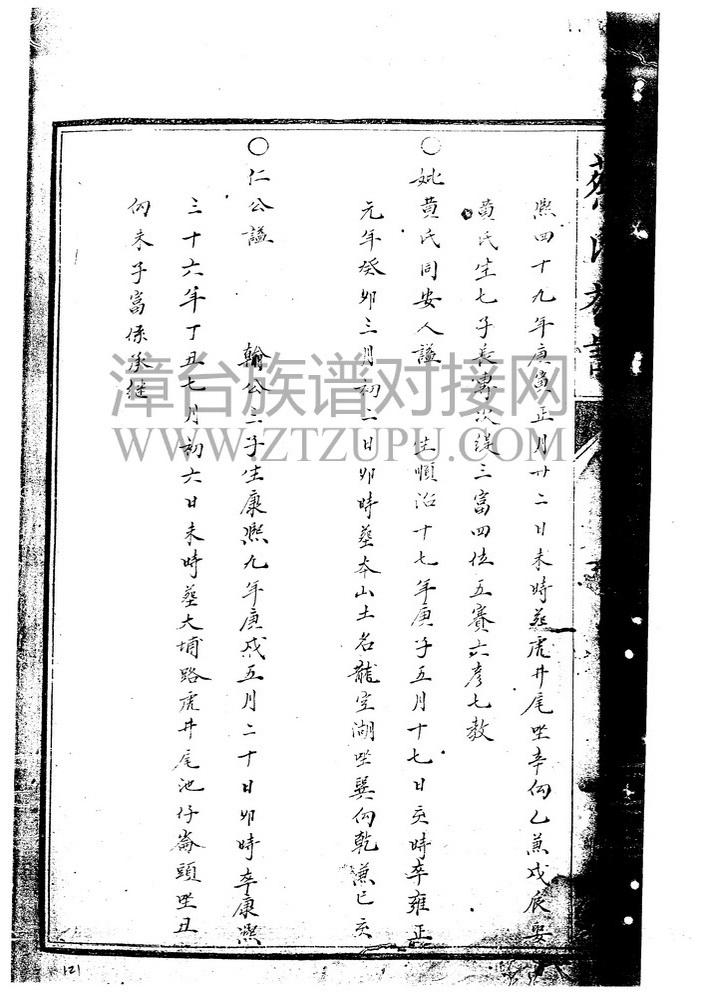 熙四十九年庚寅正月廿二日未時葬虎井尾坐辛向乙兼戌辰娶
黄氏生七子長寯次緹三富四位五賽六彥七敖
〇妣黄氏同安人謚 生順治十七年庚子五月十七日亥時卒雍正
元年癸卯三月初二日卯時葬本山土名龍空湖坐巽向乾兼巳亥
〇仁公謚 翰公三子生康熙九年庚戌五月二十日卯時卒康熙
三十六年丁丑七月初六日未時葬大埔路虎井尾池仔崙頭坐丑
向未子富係承继
漳台族谱对接网
WWW.ZTZUPU.COM
121